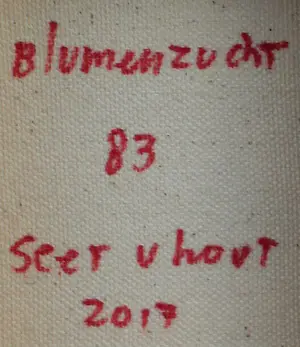 Blumenzucht
83
Seet v hout
2017